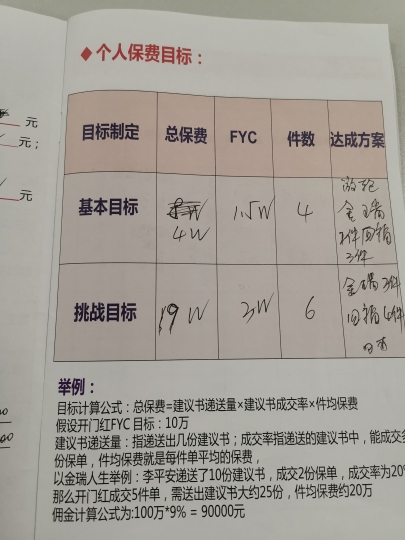 元
元；
元
◆个人保费目标：
目标制定 总保费 FYC 件数 达成方案
基本目标 4W 1.5W 4
金瑞
2件回福
2件
挑战目标 19W 3W 6
金瑞2件
回福4件
举例：
目标计算公式：总保费=建议书递送量×建议书成交率×件均保费
假设开门红FYC目标：10万
建议书递送量：指递送出几份建议书；成交率指递送的建议书中，能成交多
份保单，件均保费就是每件单平均的保费，
以金瑞人生举例：李平安递送了10份建议书，成交2份保单，成交率为20%
那么开门红成交5件单，需送出建议书大约25份，件均保费约20万
佣金计算公式为:100万*9% = 90000元